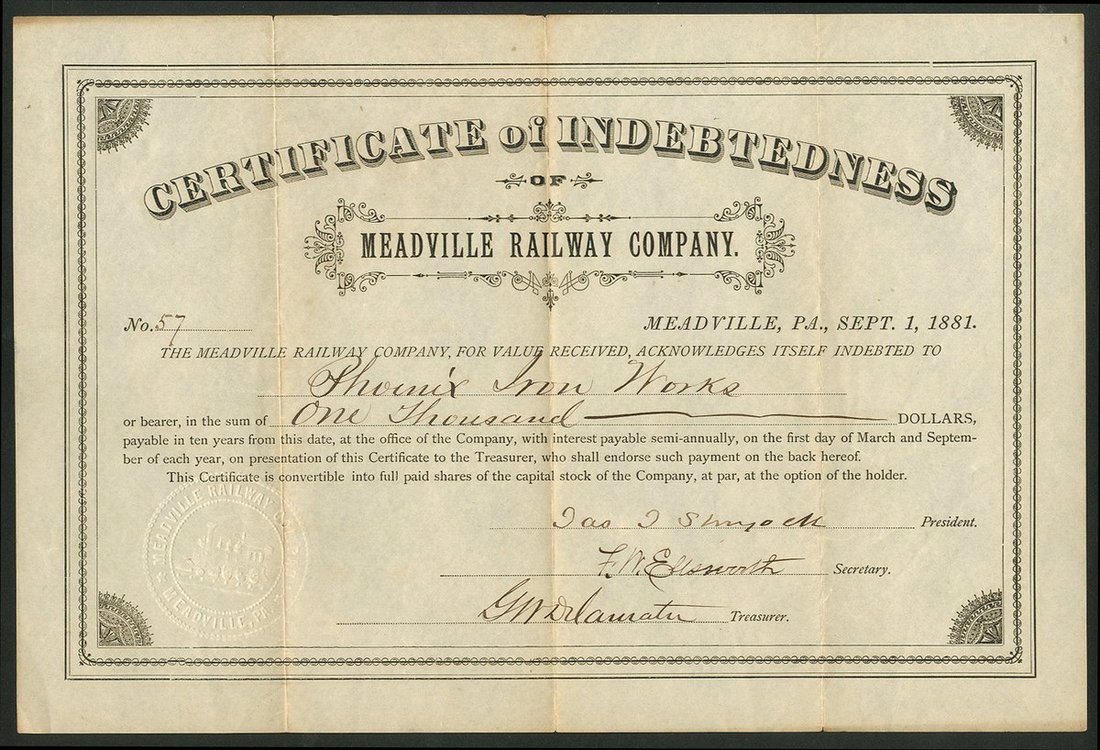 CERTIFICATE of INDEBTEDNESS
OF
MEADVILLE RAILWAY COMPANY.
No. 57
MEADVILLE, PA., SEPT. 1, 1881.
THE MEADVILLE RAILWAY COMPANY, FOR VALUE RECEIVED, ACKNOWLEDGES ITSELF INDEBTED TO
Phoenix Iron Works
or bearer, in the sum of One Thousand DOLLARS,
payable in ten years from this date, at the office of the Company, with interest payable semi-annually, on the first day of March and Septem-
ber of each year, on presentation of this Certificate to the Treasurer, who shall endorse such payment on the back hereof.
This Certificate is convertible into full paid shares of the capital stock of the Company, at par, at the option of the holder.
Jas J Shryock President.
F. W. Ellsworth Secretary.
G W Delamater Treasurer.
MEADVILLE RAILWAY
MEADVILLE, PA.